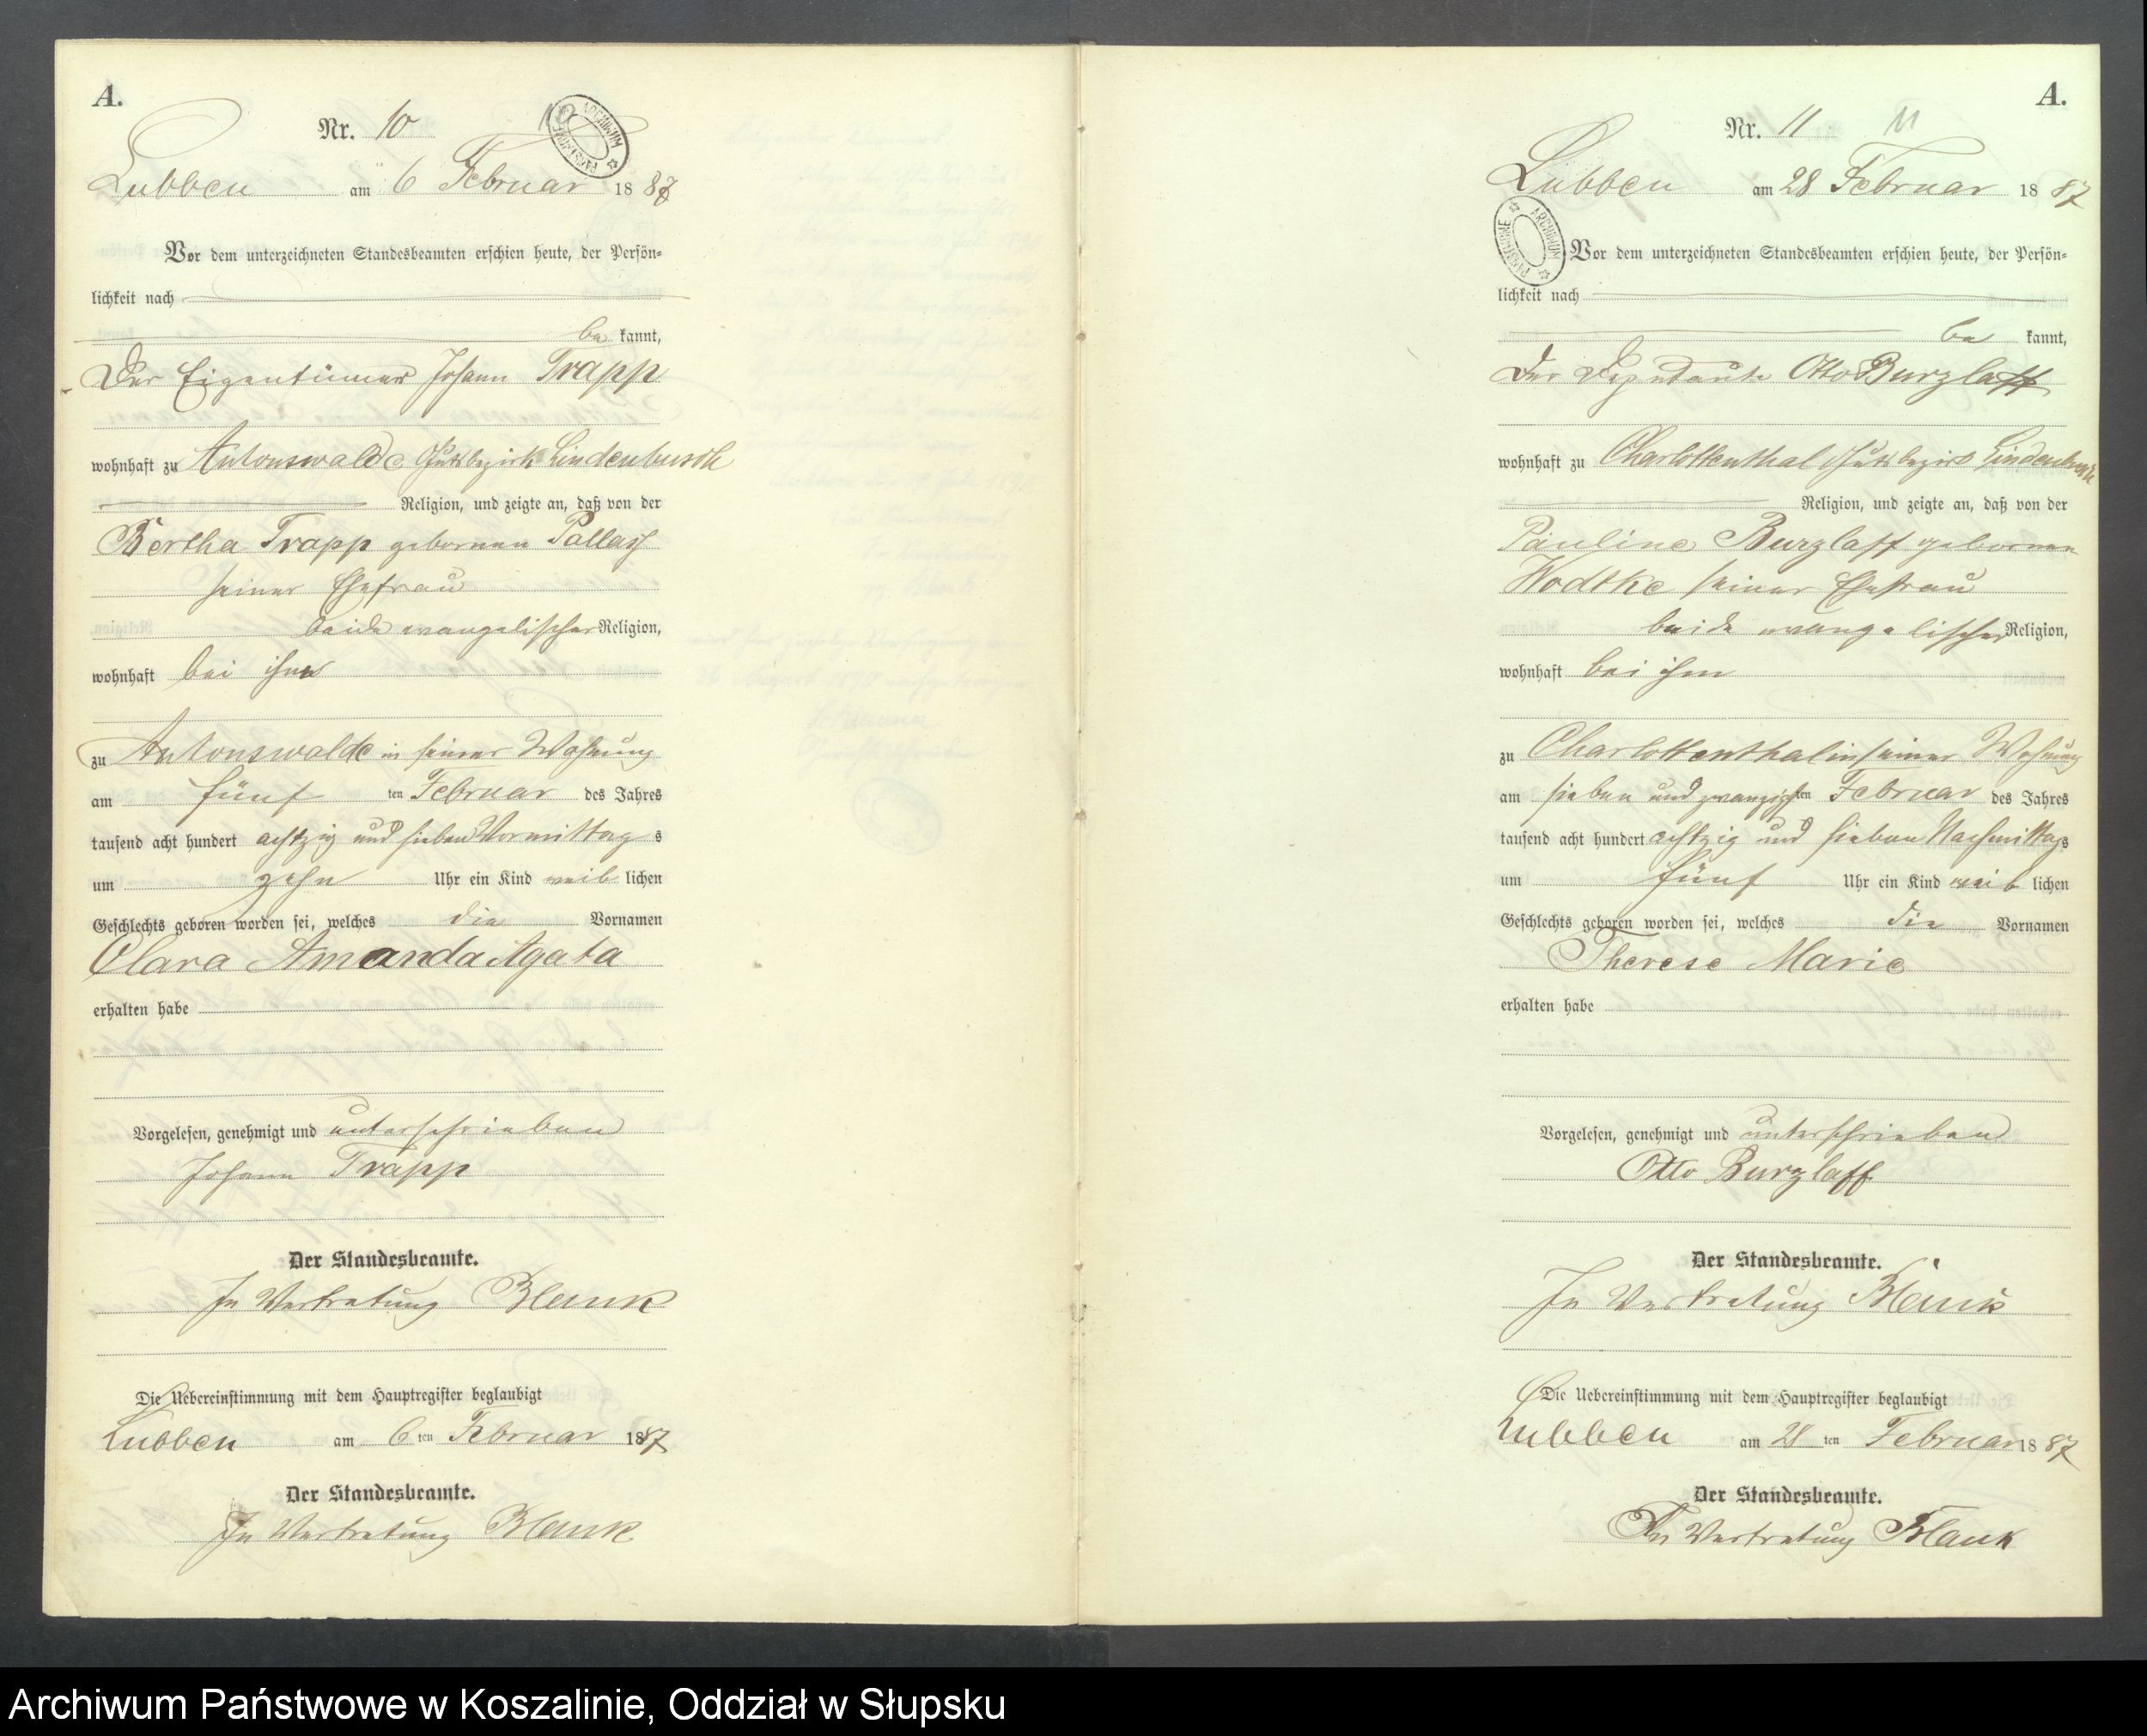 A.
Nr. 10
10
ARCHIWUM PAŃSTWOWE
Lubben am 6 Februar 1887
Vor dem unterzeichneten Standesbeamten erschien heute, der Persön-
lichkeit nach
be kannt,
Der Eigentümer Johann Trapp
wohnhaft zu Antonswalde Gutsbezirk Lindenbusch
Religion, und zeigte an, daß von der
Bertha Trapp gebornen Pallas
seiner Ehefrau
beide evangelischer Religion,
wohnhaft bei ihm
zu Antonswalde in seiner Wohnung
am fünf ten Februar des Jahres
tausend acht hundert achtzig und sieben Vormittag s
um zehn Uhr ein Kind weib lichen
Geschlechts geboren worden sei, welches die Vornamen
Clara Amanda Agata
erhalten habe
Vorgelesen, genehmigt und unterschrieben
Johann Trapp
Der Standesbeamte.
In Vertretung Blank
Die Uebereinstimmung mit dem Hauptregister beglaubigt
Lubben am 6 ten Februar 1887
Der Standesbeamte.
In Vertretung Blank
A.
Nr. 11
11
Lubben am 28 Februar 1887
ARCHIWUM PAŃSTWOWE
Vor dem unterzeichneten Standesbeamten erschien heute, der Persön-
lichkeit nach
be kannt,
Der Otto Burzlaff
wohnhaft zu Charlottenthal Gutsbezirk Lindenbusch
Religion, und zeigte an, daß von der
Pauline Burzlaff gebornen
Wodtke seiner Ehefrau
beide evangelischer Religion,
wohnhaft bei ihm
zu Charlottenthal in seiner Wohnung
am sieben und zwanzigsten Februar des Jahres
tausend acht hundert achtzig und sieben Nachmittags
um fünf Uhr ein Kind weib lichen
Geschlechts geboren worden sei, welches die Vornamen
Therese Marie
erhalten habe
Vorgelesen, genehmigt und unterschrieben
Otto Burzlaff
Der Standesbeamte.
In Vertretung Blank
Die Uebereinstimmung mit dem Hauptregister beglaubigt
Lubben am 28 ten Februar 1887
Der Standesbeamte.
In Vertretung Blank
Archiwum Państwowe w Koszalinie, Oddział w Słupsku